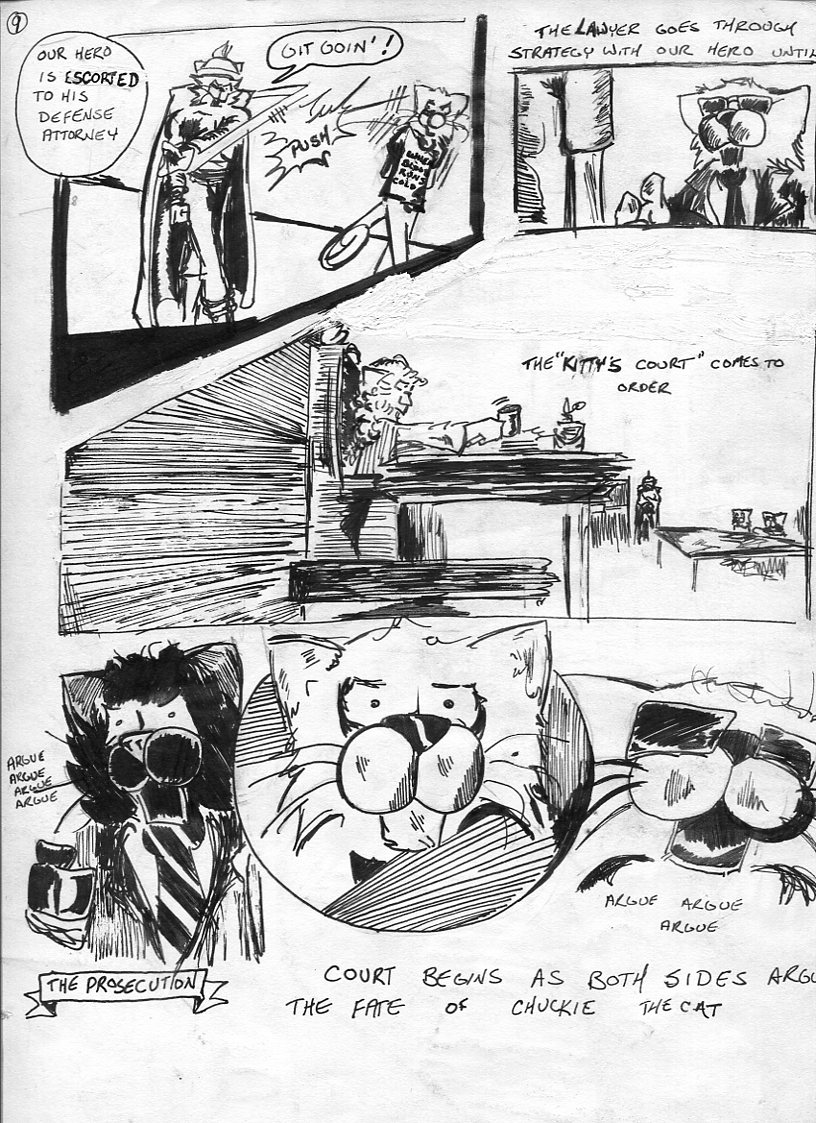 9
OUR HERO
IS ESCORTED
TO HIS
DEFENSE
ATTORNEY
GIT GOIN'!
PUSH
BLOOD
RUNS
COLD
THE LAWYER GOES THROUGH
STRATEGY WITH OUR HERO UNTIL
THE "KITTY'S COURT" COMES TO
ORDER
ARGUE
ARGUE
ARGUE
ARGUE
THE PROSECUTION
ARGUE ARGUE
ARGUE
COURT BEGINS AS BOTH SIDES ARGU
THE FATE OF CHUCKIE THE CAT